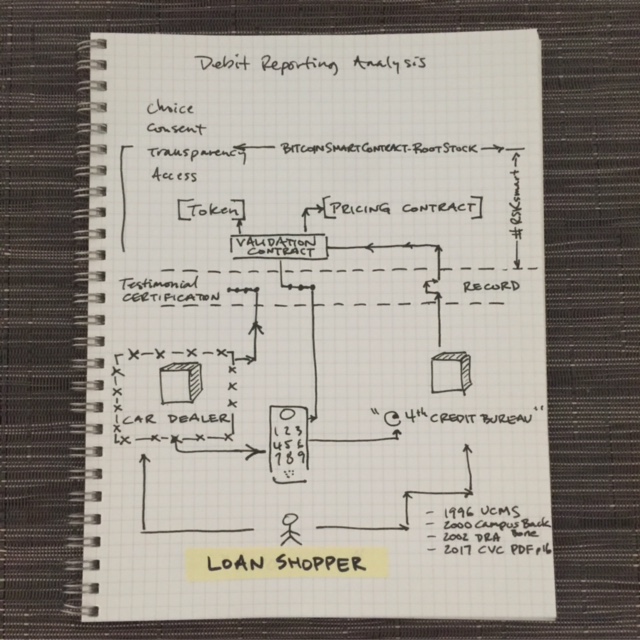 Debit Reporting Analysis
Choice
Consent
Transparency
BITCOINSMARTCONTRACT-ROOTSTOCK
Access
#RSKsmart
[Token]
[PRICING CONTRACT]
VALIDATION
CONTRACT
Testimonial
CERTIFICATON
RECORD
CAR DEALER
1 2 3
4 5 6
7 8 9
"@ 4th CREDIT BUREAU"
- 1996 UCMS
- 2000 Campus Back
Bone
- 2002 DRA
- 2017 CVC PDF
LOAN SHOPPER